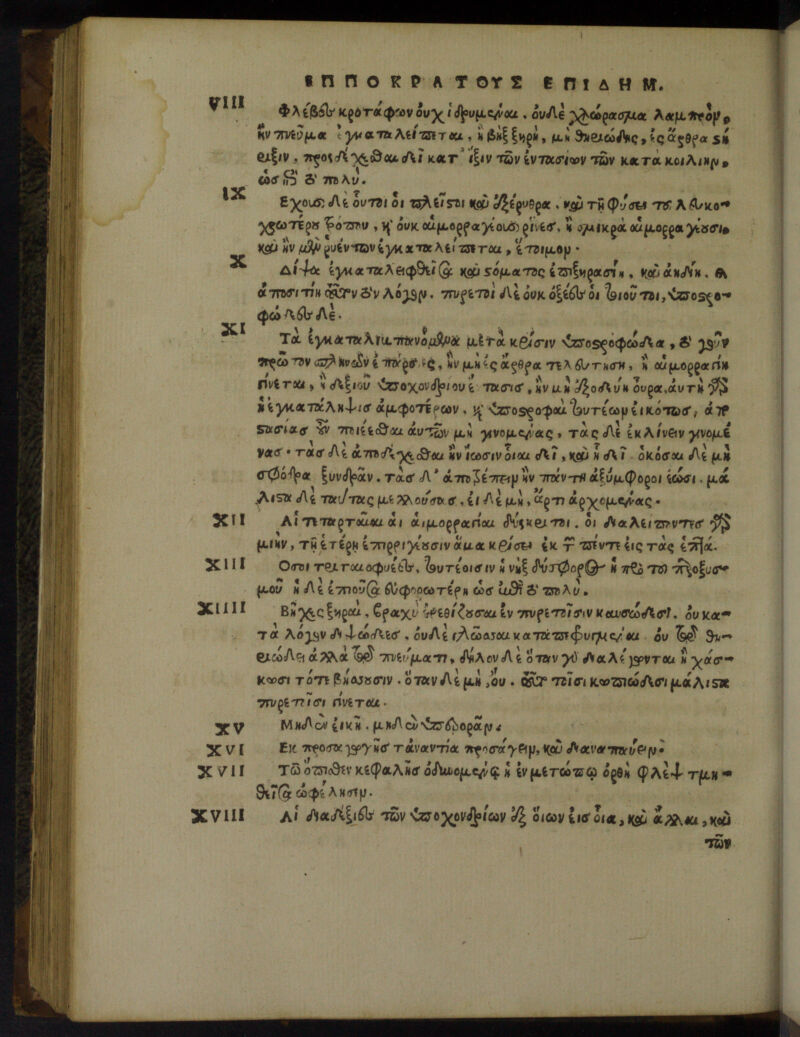 ΙΠΠΟΚΡΑΤΟΥΣ ΕΠΙΔΗΜ.
VIII Φλέβες κροτάφων οὐχ ἱδρυμέναι. οὐδὲ χλώρασμα λαμπρὸν,
ἢν πνεῦμα ἐγκαταλείπεται, ἢ βὴξ ξηρὴ, μὴ θηριώδης, ἐς ἄρθρα στή
ριξιν. προσδέχεσθαι δεῖ κατ' ἴξιν τῶν ἐντασίων τῶν κατὰ κοιλίην,
ὡς ἐπὶ τὸ πολύ.
IX Ἔχουσι δὲ οὗτοι οἱ πλεῖστοι καὶ ἐξέρυθρα, καὶ τῇ φύσει τοῦ λευκο-
χρωτέρου τρόπου, καὶ οὐκ αἱμορραγέουσι ῥῖνες, ἢ σμικρὰ αἱμορραγέουσι,
καὶ ἢν μὲν ῥυέντων ἐγκαταλείπεται, ἕτοιμον.
X Δίψα ἐγκαταλειφθεῖσα καὶ στόματος ἐπιξηρασίη, καὶ ἀηδίη, καὶ
ἀποσιτίη τὸν τρόπον τοῦτον λόγου. πυρετοὶ δὲ οὐκ ὀξέες οἱ τοιοῦτοι, ὑποστρο-
φώδεες δέ.
XI Τὰ ἐγκαταλιμπανόμενα μετὰ κρίσιν ὑποστροφώδεα, τὸ γοῦν
πρῶτον σπληνῶν ἐπάρσιες, ἢν μὴ ἐς ἄρθρα τελευτήσῃ, ἢ αἱμορραγίη
γίνεται, ἢ δεξιοῦ ὑποχονδρίου ἔντασις, ἢν μὴ ἐξοδεύῃ οὖρα, αὐτὴ γὰρ
ἡ ἐγκατάληψις ἀμφοτέρων, καὶ ὑποστροφαὶ τουτέων εἰκότως, ἀπο
στάσιας οὖν ποιέεσθαι αὐτῶν μὴ γινομένας, τὰς δὲ ἐκλίνειν γινομέ
νας. τὰς δὲ ἀποδέχεσθαι ἢν ἴωσιν οἷαι δεῖ, καὶ ᾗ δεῖ. ὁκόσαι δὲ μὴ
σφόδρα ξυνδρᾶν. τὰς δ' ἀποτρέπειν ἢν πάντῃ ἀξύμφοροι ἔωσι. μά
λιστα δὲ ταύτας μελλούσας, εἰ δὲ μὴ, ἄρτι ἀρχομένας.
XII Αἱ τεταρταῖαι αἱ αἱμορραγίαι δύσκριτοι. οἱ διαλείποντες γὰρ
μίην, τῇ ἑτέρῃ ἐπιρριγέουσιν ἅμα κρίσει ἐκ τῶν πέντε εἰς τὰς ἑπτά.
XIII Ὅσοι τριταιοφυέες, τουτέοισιν ἡ νὺξ δύσφορος ἡ πρὸ τοῦ παροξυσ-
μοῦ ἡ δὲ ἐπιοῦσα εὐφορωτέρη ὡς ἐπὶ τὸ πολύ.
XIIII Βῆχες ξηραὶ, βραχὺ ἐρεθίζουσαι ἐν πυρετοῖσιν καυσώδεσι. οὐ κα-
τὰ λόγον διψώδεες, οὐδὲ γλῶσσαι καταπεφρυγμέναι οὐ τῷ θη-
ριώδει ἀλλὰ τῷ πνεύματι, δῆλον δὲ ὅταν γὰρ διαλέγονται ἢ χάσ-
κωσι τότε βήσσουσιν. ὅταν δὲ μὴ, οὔ. τοῦτο ἐν τοῖσι κοπιώδεσι μάλιστα
πυρετοῖσι γίνεται.
XV Μηδὲν εἰκῆ. μηδὲν ὑπερορᾶν.
XVI Ἐκ προσαγωγῆς τἀναντία προσάγειν, καὶ διαναπαύειν.
XVII Τῷ ὄπισθεν κεφαλῆς ὀδυνομένῳ ἡ ἐν μετώπῳ ὀρθὴ φλὲψ τμη-
θεῖσα ὠφέλησεν.
XVIII Αἱ διαδέξιες τῶν ὑποχονδρίων ἐξ οἵων εἰς οἷα, καὶ ἄλλαι, καὶ
τῶν